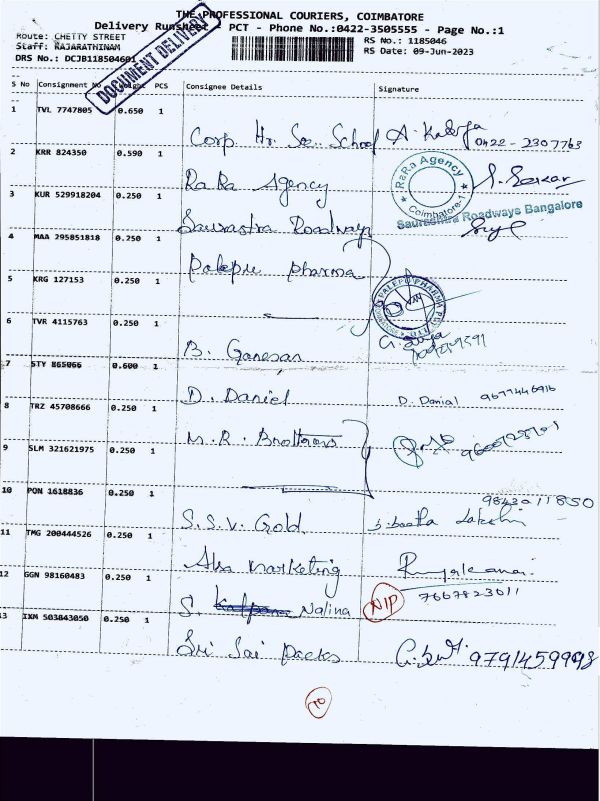 THE PROFESSIONAL COURIERS, COIMBATORE
Delivery Runsheet - PCT - Phone No.:0422-3505555 - Page No.:1
Route: CHETTY STREET
RS No.: 1185046
Staff: RAJARATHINAM
RS Date: 09-Jun-2023
DRS No.: DCJB118504601
DOCUMENT DELIVERY
S No Consignment No Weight PCS Consignee Details Signature
1 TVL 7747805 0.650 1
Corp Hr. Sec. School A. 0422-2307763
2 KRR 824350 0.590 1
RaRa Agency
RaRa Agency Coimbatore-1
3 KUR 529918204 0.250 1
Saurastra Roadways
Saurashtra Roadways Bangalore
4 MAA 295851818 0.250 1
Palepu Pharma
5 KRG 127153 0.250 1
PALEPU PHARMA
6 TVR 4115763 0.250 1
B. Ganesan
7 STY 865066 0.600 1
D. Daniel D. Danial 9677446916
8 TRZ 45708666 0.250 1
M.R. Brothers
9 SLM 321621975 0.250 1
10 PON 1618836 0.250 1
9843011850
S.S.V. Gold
11 TMG 200444526 0.250 1
Marketing
12 GGN 98160483 0.250 1
7667823011
S. Kalpana Nalina N/P
13 IXM 503843050 0.250 1
Sri Sai Packs 9791459998